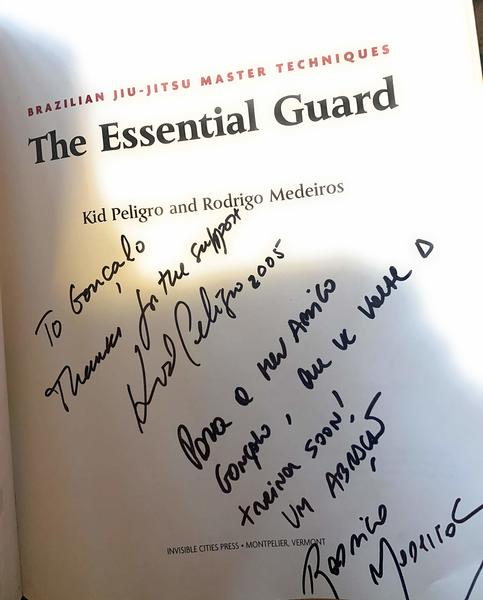 BRAZILIAN JIU-JITSU MASTER TECHNIQUES
The Essential Guard
Kid Peligro and Rodrigo Medeiros
To Gonçalo
Thanks for the support
Kid Peligro 2005
Para o meu Amigo
Gonçalo, que vc volte a
treinar soon!
Um Abraço
Rodrigo
Medeiros
INVISIBLE CITIES PRESS • MONTPELIER, VERMONT